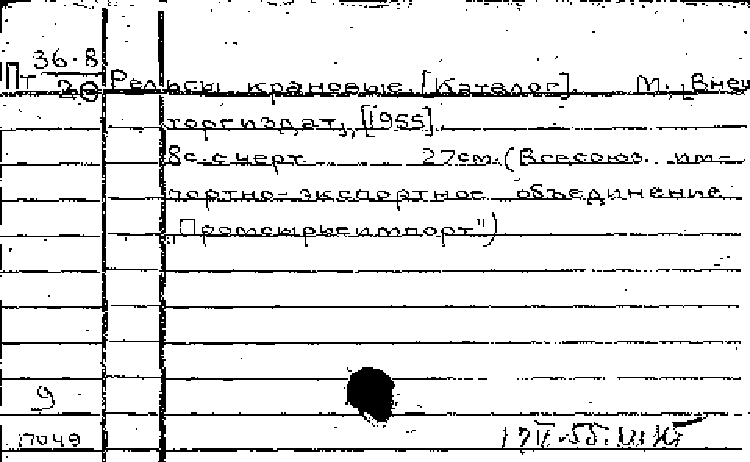 Пт 36-8
20 Рельсы крановые. [Каталог]. М., [Внеш
торгиздат], [1955].
8с. с черт. 27 см. (Всесоюз. им-
портно-экспортное объединение
"Промсырьеимпорт")
9
17049